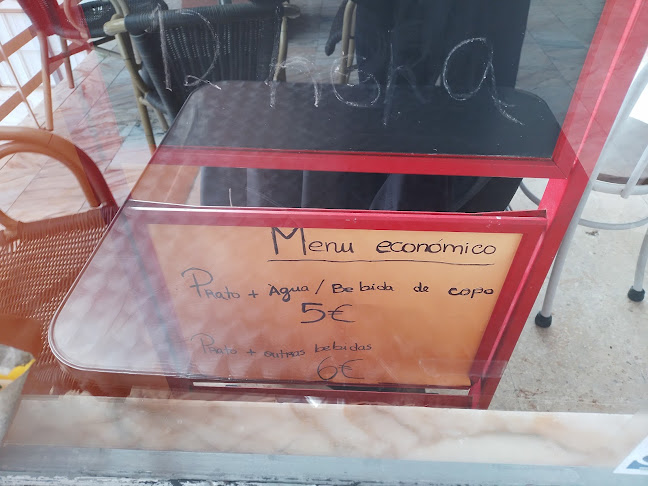 Menu económico
Prato + Àgua / Bebida de copo
5€
Prato + outras bebidas
6€